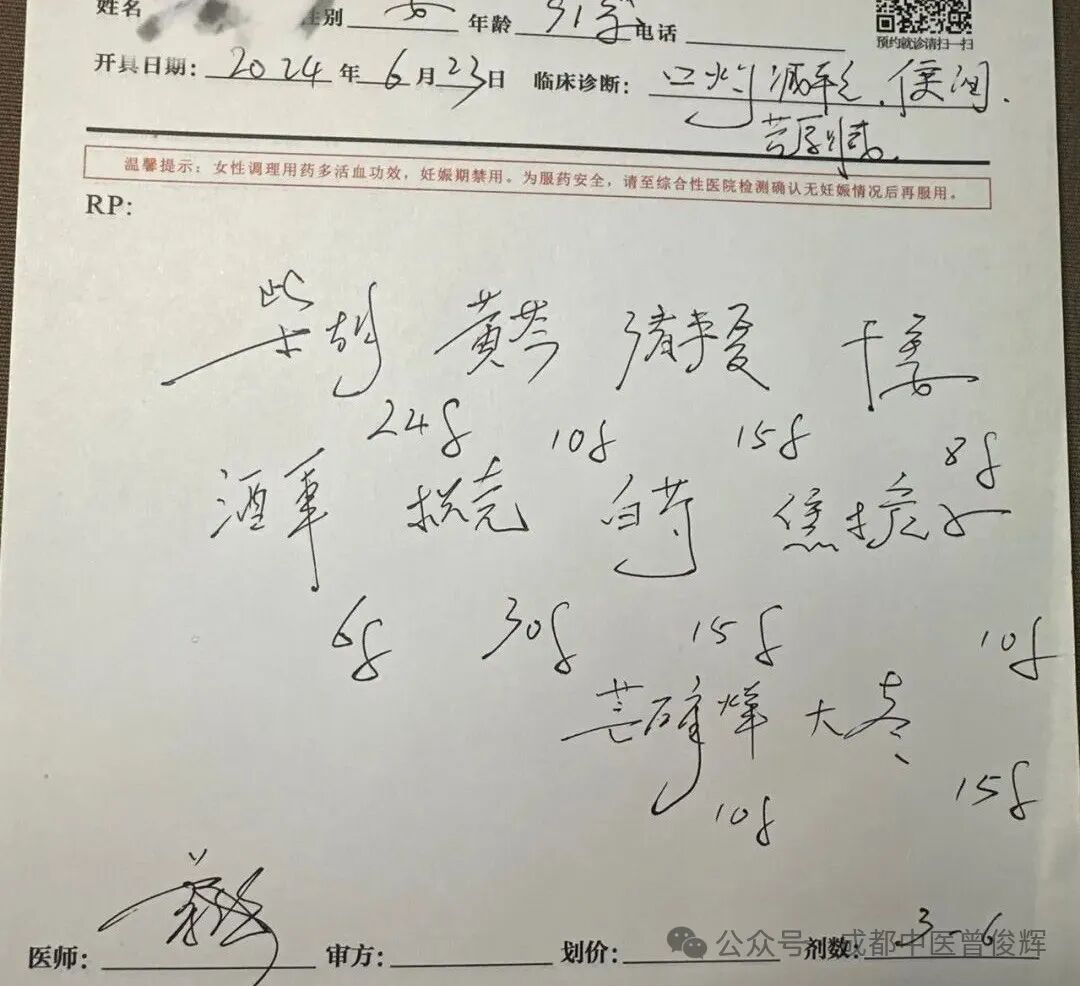 姓名 性别 女 年龄 31岁 电话
预约就诊请扫一扫
开具日期: 2024 年 6 月 23 日 临床诊断: 口 便
苔厚
温馨提示：女性调理用药多活血功效，妊娠期禁用。为服药安全，请至综合性医院检测确认无妊娠情况后再服用。
RP:
柴胡 黄芩 清半夏 干姜
24g 10g 15g 8g
酒军 枳壳 白芍 焦栀子
6g 30g 15g 10g
芒硝 大枣
10g 15g
医师: 审方: 划价: 剂数: 3-6
公众号·成都中医曾俊辉